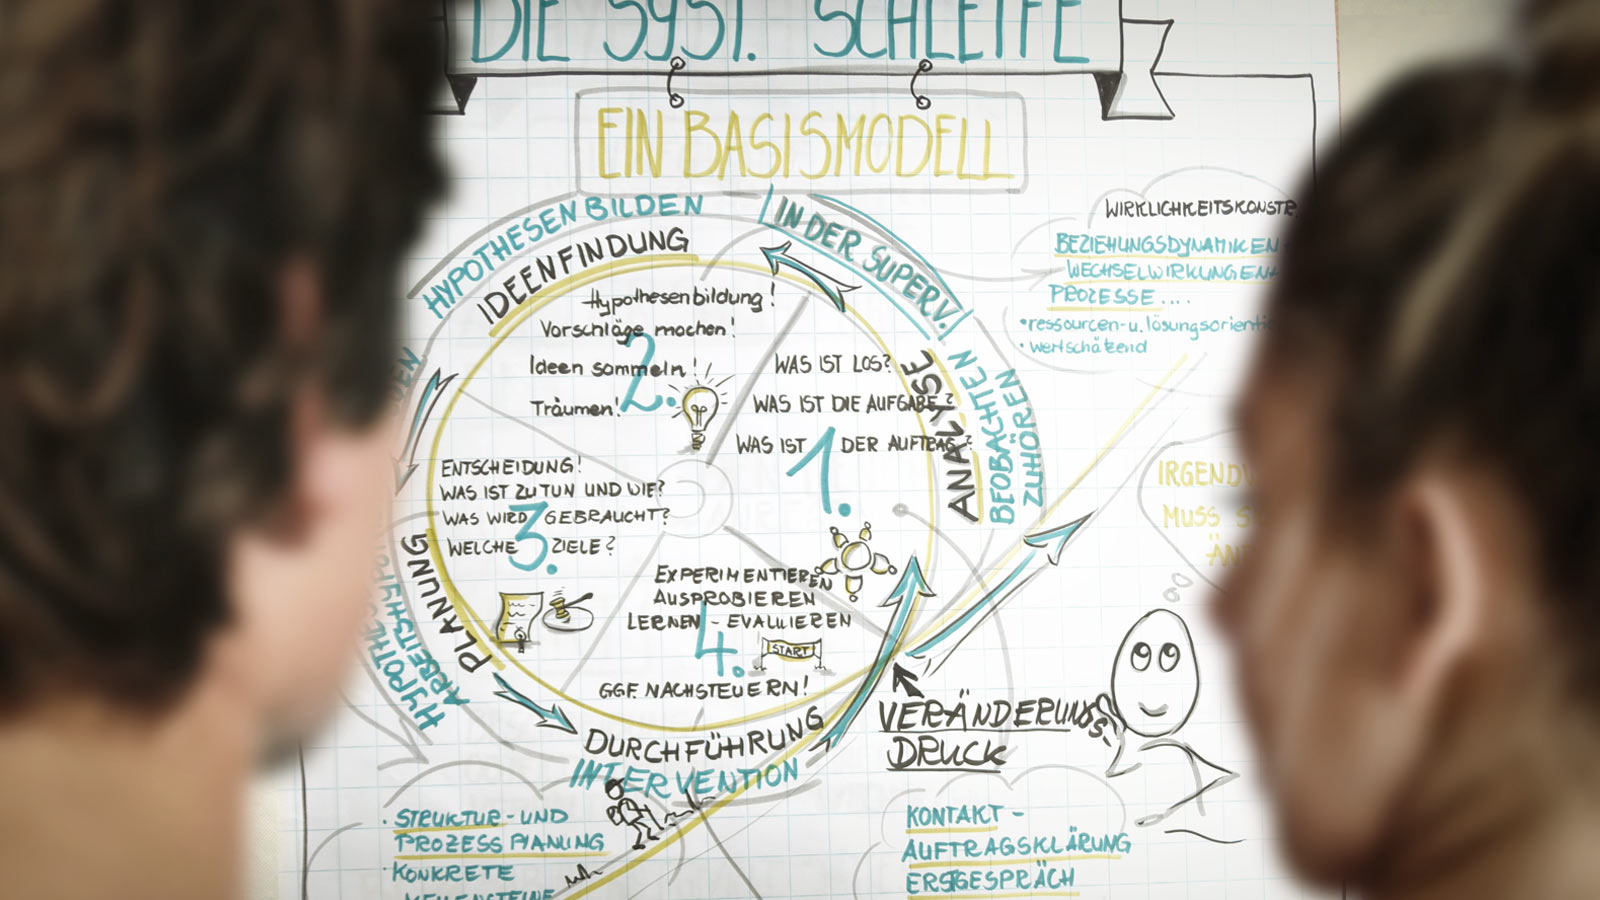 DIE SYST. SCHLEIFE
EIN BASISMODELL
HYPOTHESEN BILDEN
IN DER SUPERV.
IDEENFINDUNG
Hypothesenbildung!
Vorschläge machen!
Ideen sammeln!
Träumen!
2.
WAS IST LOS?
WAS IST DIE AUFGABE?
WAS IST DER AUFTRAG?
1.
ANALYSE
BEOBACHTEN
ZUHÖREN
WIRKLICHKEITSKONSTR.
BEZIEHUNGSDYNAMIKEN
WECHSELWIRKUNGEN
PROZESSE....
• ressourcen- u. lösungsorienti
• wertschätzend
ENTSCHEIDUNG!
WAS IST ZU TUN UND WIE?
WAS WIRD GEBRAUCHT?
WELCHE ZIELE?
3.
PLANUNG
ARBEITSHYPO
EXPERIMENTIEREN
AUSPROBIEREN
LERNEN - EVALUIEREN
4.
START
GGF. NACHSTEUERN!
DURCHFÜHRUNG
INTERVENTION
IRGENDW
MUSS S
ÄN
VERÄNDERUNGS-
DRUCK
• STRUKTUR- UND
PROZESSPLANUNG
• KONKRETE
MEILENSTEINE
KONTAKT -
AUFTRAGSKLÄRUNG
ERSTGESPRÄCH